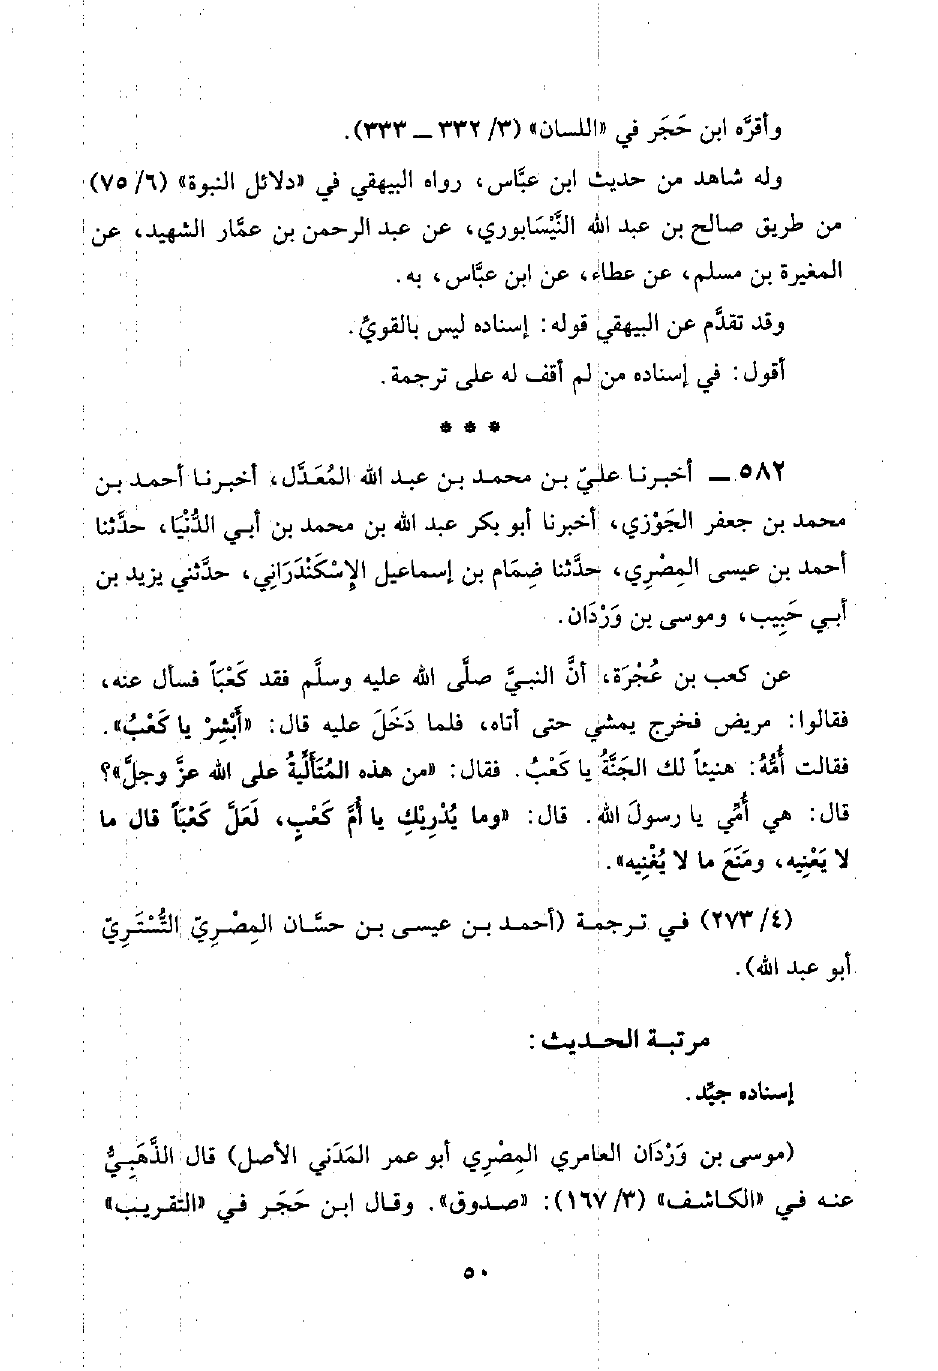 وأقرَّه ابن حَجَر في «اللسان» (٣/ ٣٣٢ ــ ٣٣٣).
وله شاهد من حديث ابن عبَّاس، رواه البيهقي في «دلائل النبوة» (٦/ ٧٥)
من طريق صالح بن عبد الله النَّيْسَابوري، عن عبد الرحمن بن عمَّار الشهيد، عن
المغيرة بن مسلم، عن عطاء، عن ابن عبَّاس، به.
وقد تقدَّم عن البيهقي قوله: إسناده ليس بالقويِّ.
أقول: في إسناده من لم أقف له على ترجمة.
* * *
٥٨٢ ــ أخبرنا عليّ بن محمد بن عبد الله المُعَدَّل، أخبرنا أحمد بن
محمد بن جعفر الجَوْزي، أخبرنا أبو بكر عبد الله بن محمد بن أبي الدُّنْيَا، حدَّثنا
أحمد بن عيسى المِصْرِي، حدَّثنا ضِمَام بن إسماعيل الإِسْكَنْدَرَاني، حدَّثني يزيد بن
أبي حَبِيب، وموسى بن وَرْدَان.
عن كعب بن عُجْرَة، أنَّ النبيَّ صلَّى الله عليه وسلَّم فقد كَعْبَاً فسأل عنه،
فقالوا: مريض فخرج يمشي حتى أتاه، فلما دَخَلَ عليه قال: «أَبْشِرْ يا كَعْبُ».
فقالت أُمُّهُ: هنيئاً لك الجَنَّةُ يا كَعْبُ. فقال: «من هذه المُتَأَلِّيةُ على الله عزَّ وجلَّ»؟
قال: هي أُمِّي يا رسولَ الله. قال: «وما يُدْرِيْكِ يا أُمَّ كَعْبٍ، لَعَلَّ كَعْبَاً قال ما
لا يَعْنِيه، ومَنَعَ ما لا يُغْنِيه».
(٤/ ٢٧٣) في ترجمة (أحمد بن عيسى بن حسَّان المِصْرِيّ التُّسْتَرِيّ
أبو عبد الله).
مرتبة الحديث:
إسناده جيِّد.
(موسى بن وَرْدَان العامري المِصْرِي أبو عمر المَدَني الأصل) قال الذَّهَبِيُّ
عنه في «الكاشف» (٣/ ١٦٧): «صدوق». وقال ابن حَجَر في «التقريب»
٥٠